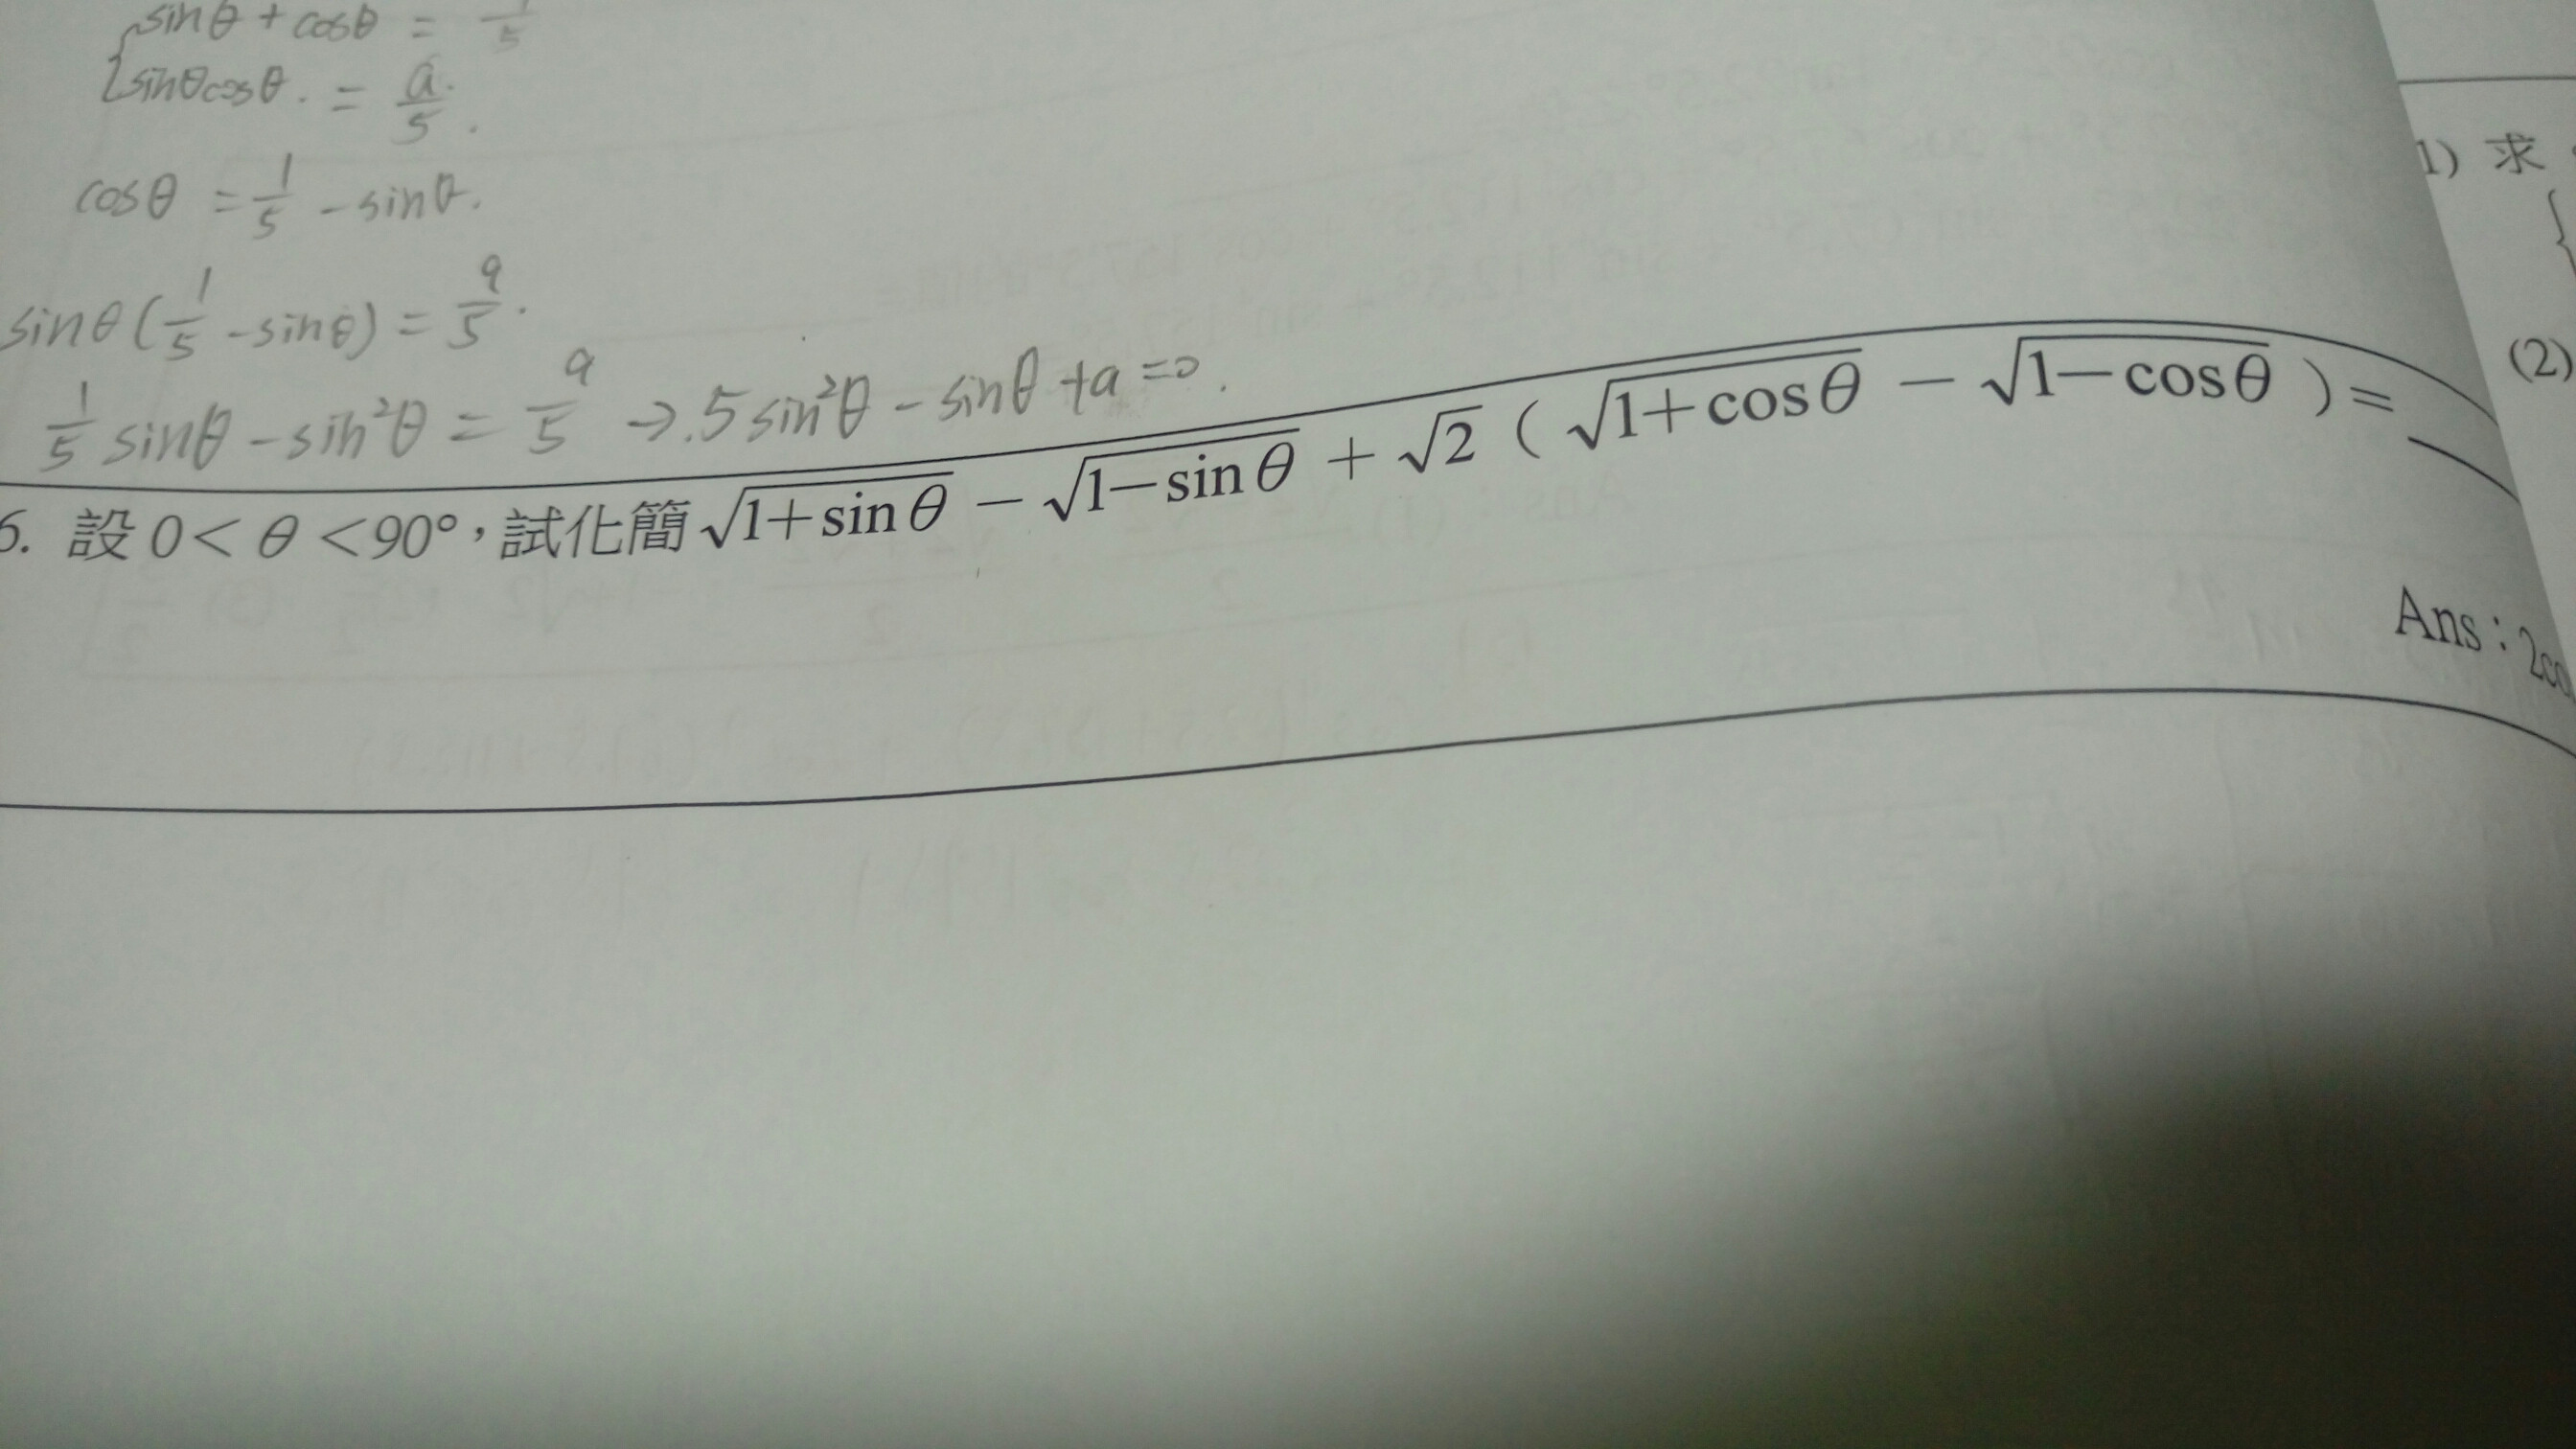 sinθ + cosθ = 1/5
sinθcosθ. = a/5.
cosθ = 1/5 - sinθ.
sinθ(1/5 - sinθ) = a/5.
1/5 sinθ - sin²θ = a/5 → .5sin²θ - sinθ + a = 0.
6. 設 0< θ <90°,試化簡 √(1+sinθ) − √(1−sinθ) + √2 ( √(1+cosθ) − √(1−cosθ) ) =
Ans:2co
1) 求
(2)